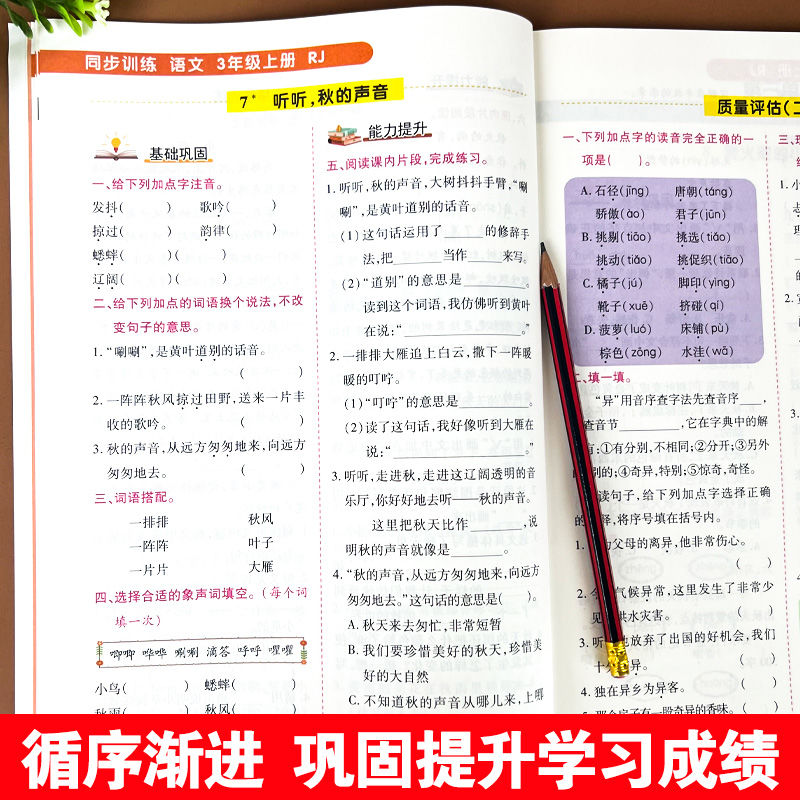 同步训练 语文 3年级上册 RJ
7* 听听,秋的声音
基础巩固
一、给下列加点字注音。
发抖( ) 歌吟( )
掠过( ) 韵律( )
蟋蟀( )( )
辽阔( )( )
二、给下列加点的词语换个说法,不改
变句子的意思。
1.“唰唰”,是黄叶道别的话音。
( )
2.一阵阵秋风掠过田野,送来一片丰
收的歌吟。 ( )
3.秋的声音,从远方匆匆地来,向远方
匆匆地去。 ( )
三、词语搭配。
一排排 秋风
一阵阵 叶子
一片片 大雁
四、选择合适的象声词填空。(每个词
填一次)
唧唧 哗哗 唰唰 滴答 呼呼 喔喔
小鸟( ) 蟋蟀(
秋雨( 秋风(
能力提升
五、阅读课内片段,完成练习。
1.听听,秋的声音,大树抖抖手臂,“唰
唰”,是黄叶道别的话音。
(1)这句话运用了____的修辞手
法,把____当作____来写。
(2)“道别”的意思是____。
读到这个词语,我仿佛听到黄叶
在说:“____。”
2.一排排大雁追上白云,撒下一阵暖
暖的叮咛。
(1)“叮咛”的意思是____。
(2)读了这句话,我好像听到大雁在
说:“____。”
3.听听,走进秋,走进这辽阔透明的音
乐厅,你好好地去听——秋的声音。
这里把秋天比作____,说
明秋的声音就像是____。
4.“秋的声音,从远方匆匆地来,向远方
匆匆地去。”这句话的意思是( )。
A.秋天来去匆忙,非常短暂
B.我们要珍惜美好的秋天,珍惜美
好的大自然
C.不知道秋的声音从哪儿来,上哪
质量评估(二
一、下列加点字的读音完全正确的一
项是( )。
A.石径(jīng) 唐朝(táng)
骄傲(ào) 君子(jūn)
B.挑剔(tiāo) 挑选(tiāo)
挑动(tiǎo) 挑促织(tiǎo)
C.橘子(jú) 脚印(yìng)
靴子(xuē) 挤碰(qí)
D.菠萝(luó) 床铺(pù)
棕色(zōng) 水洼(wā)
二、填一填。
“异”用音序查字法先查音序____,
查音节____,它在字典中的解
有:①有分别,不相同;②分开;③另外
别的;④奇异,特别;⑤惊奇,奇怪。
读句子,给下列加点字选择正确
择,将序号填在括号内。
1. 为父母的离异,他非常伤心。
( )
2. 气候异常,这里发生了非常少
见 洪水灾害。 ( )
3.听 她放弃了出国的好机会,我们
十分 异。 ( )
4.独在异乡为异客。 ( )
循序渐进 巩固提升学习成绩